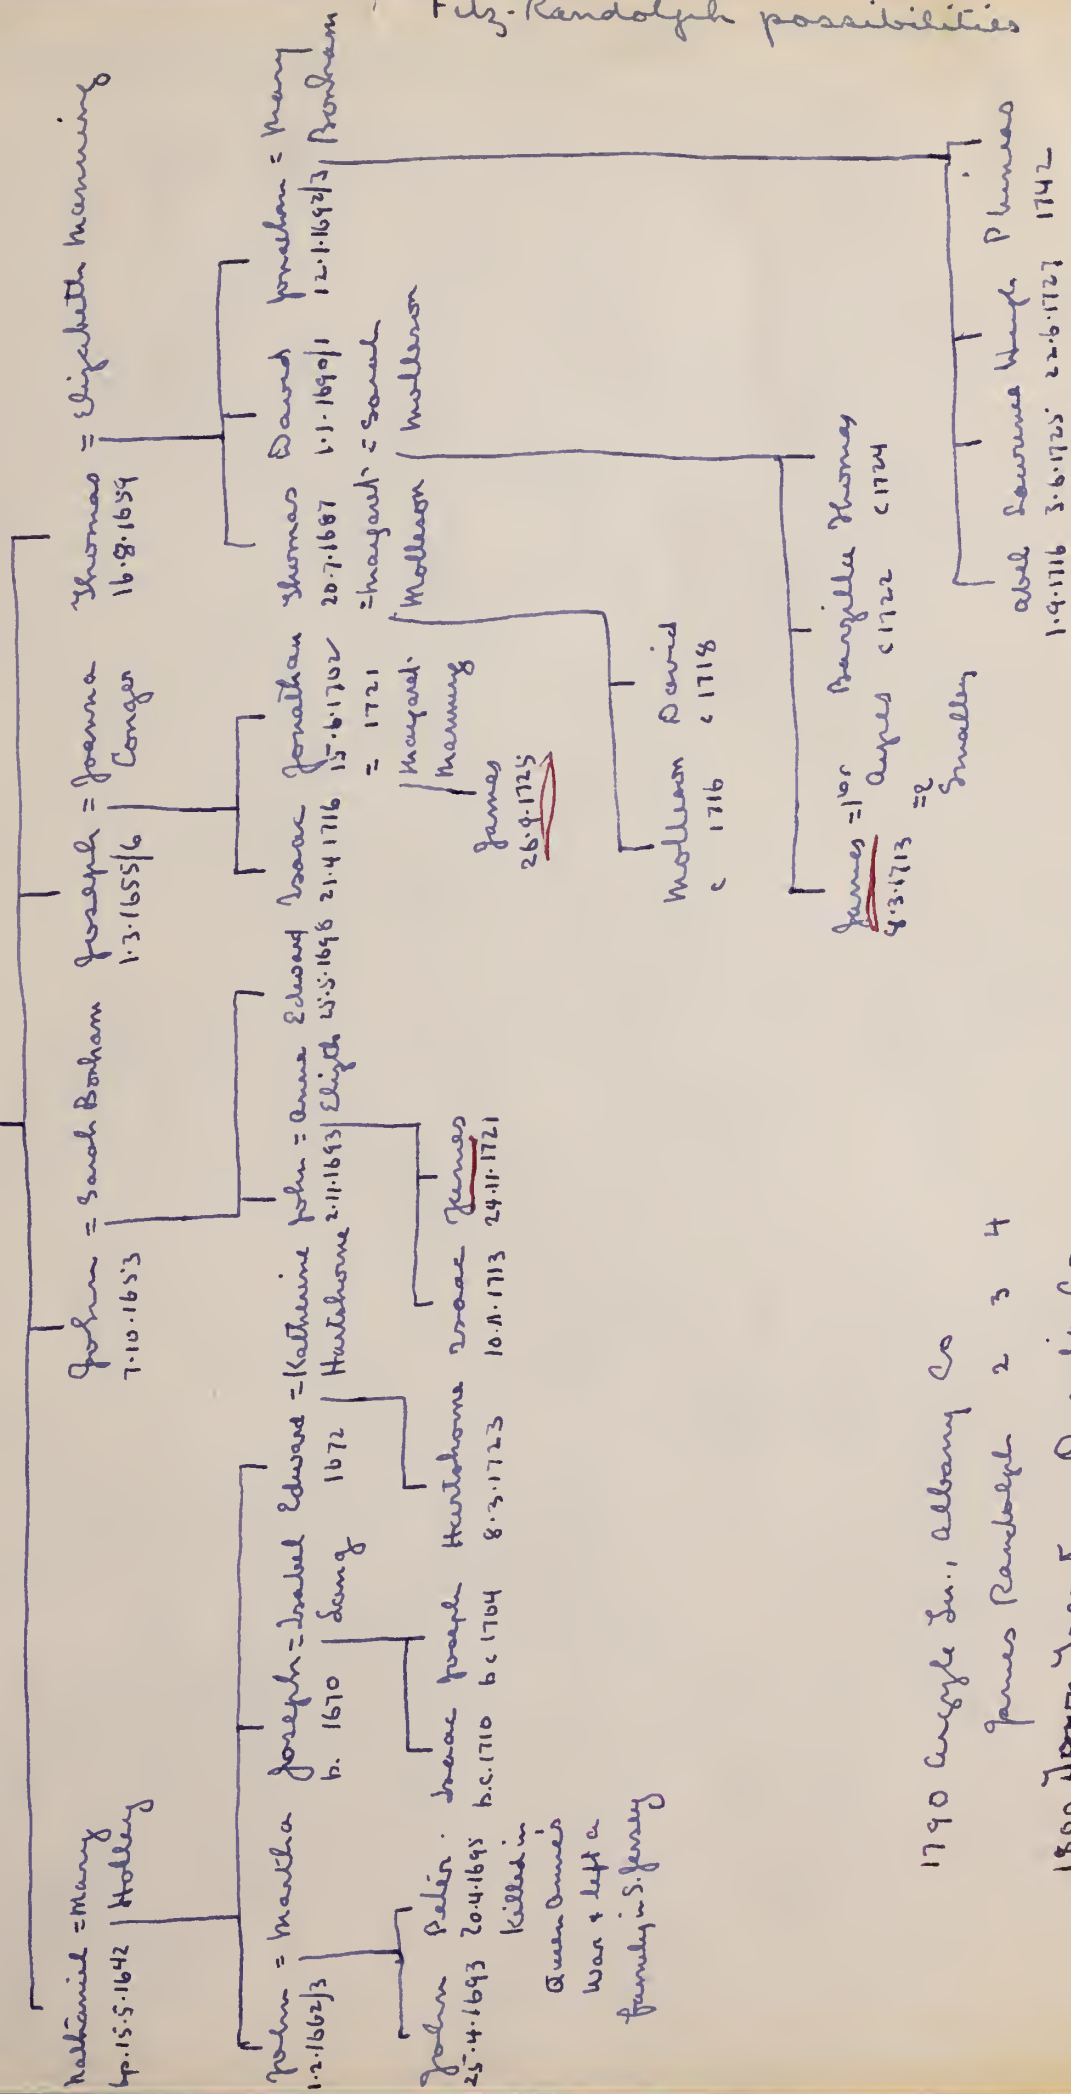 Fitz-Randolph possibilities
Nathaniel = Mary
bp. 15.5.1642 Holley
John = Sarah Bonham
7.10.1653
Joseph = Joanna
1.3.1655/6 Conger
Thomas = Elizabeth Manning
16.8.1659
John = Martha
1.2.1662/3
Joseph = Isabel
b. 1670
Edward = Katherine
1672 Hartshorne
John = Anne
2.11.1693 Elizth
Edward
Isaac
21.4.1716
Jonathan
15.6.1702
= 1721
Margaret
Manning
Thomas
20.7.1687
= Margaret
Molleson
David
1.1.1690/1
= Sarah
Molleson
Jonathan = Mary
12.1.1692/3 Bonham
John
25.4.1693
Peter
20.4.1695
Killed in
Queen Annes
War & left a
family in S. Jersey
Isaac
b.c. 1710
Joseph
b c 1704
Hartshorne
8.3.1723
Isaac
10.11.1713
James
24.11.1721
James
26.9.1725
Molleson
c 1716
David
c 1718
James =1
8.3.1713
=2
Smalley
Barzilla
c 1722
Thomas
c 1724
Abel
1.9.1716
Laurence
3.6.1725
Hugh
22.6.1727
Phineas
1742
1790 Argyle Tn., Albany Co
James Randolph 2 3 4